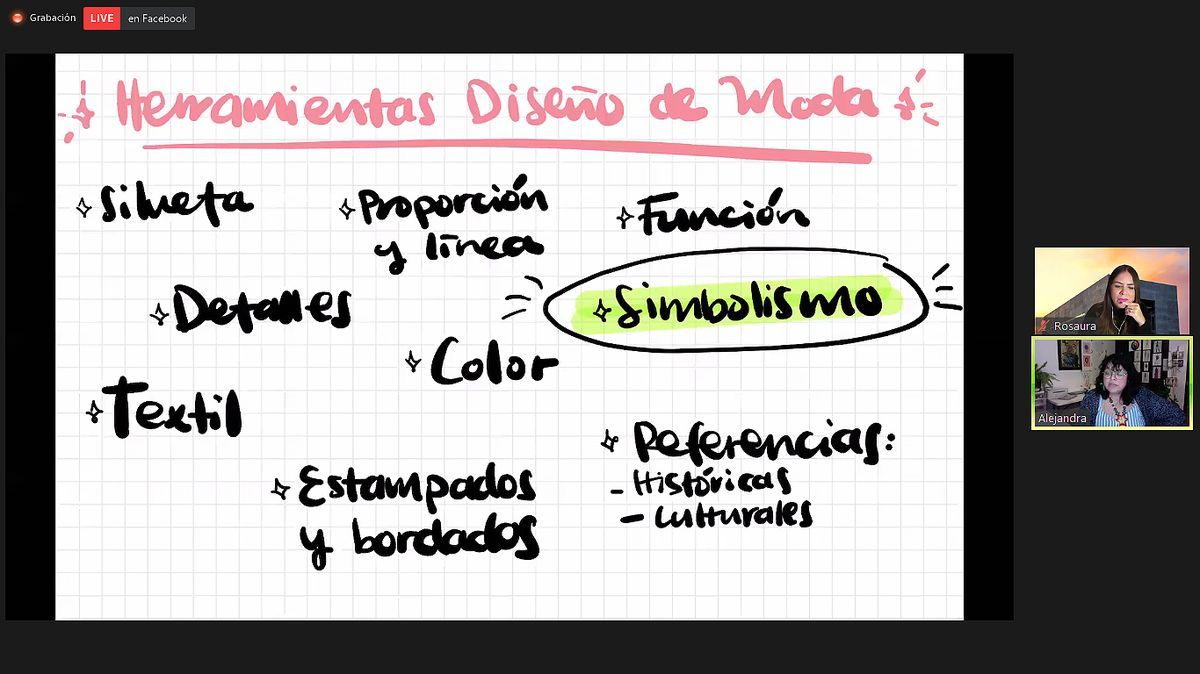 Grabación LIVE en Facebook
Herramientas Diseño de Moda
Silueta
Proporción
y línea
Función
Detalles
Simbolismo
Color
Textil
Referencias:
- Históricas
- Culturales
Estampados
y bordados
Rosaura
Alejandra